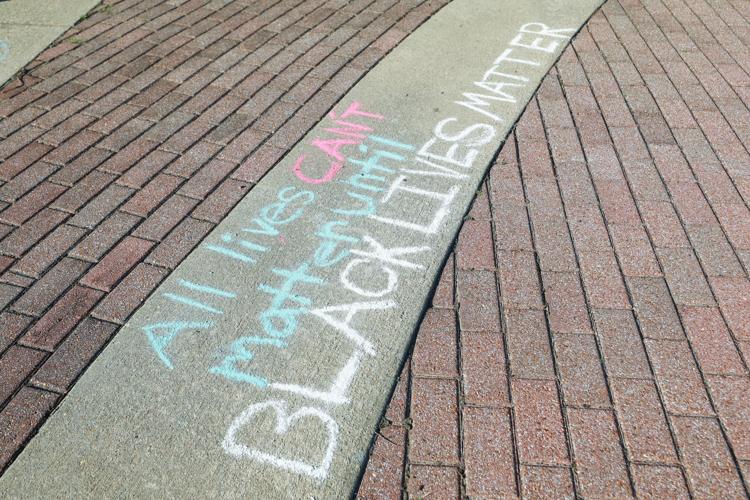 All lives CAN'T
matter until
BLACK LIVES MATTER